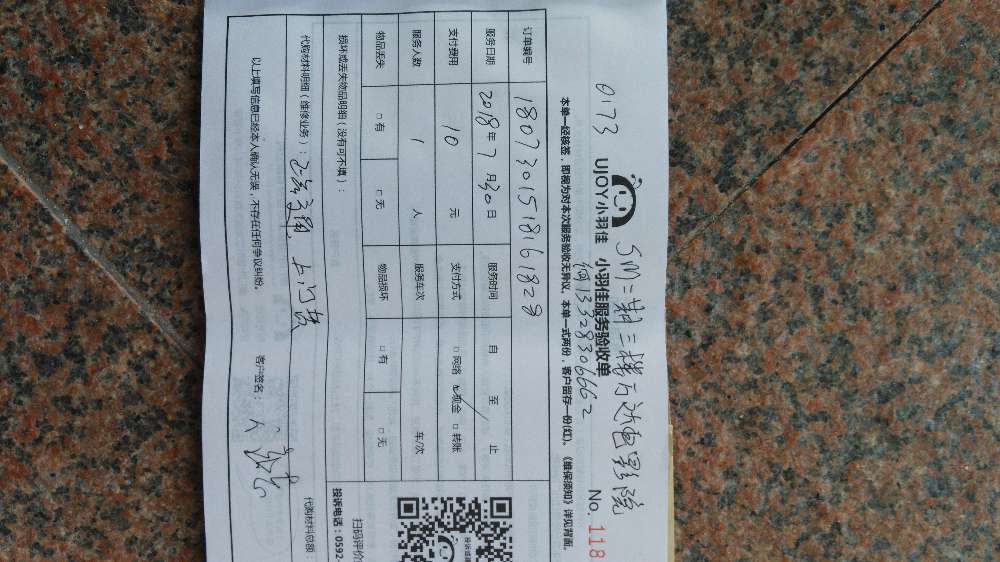 0173
SM二期二楼万达电影院
UJOY小羽佳 小羽佳服务验收单
No. 118
13328306662
本单一经核签，即视为对本次服务验收无异议。本单一式两份，客户留存一份(红)。《维保须知》详见背面。
订单编号 1807301518161828
服务日期 2018年7月30日 服务时间 自 至 止
支付费用 10 元 支付方式 □网络 ☑现金 □转账
服务人数 1 人 服务车次 车/次
物品丢失 □有 □无 物品损坏 □有 □无
损坏或丢失物品明细（没有可不填）：
代购材料明细（维修业务）： 上门费
代购材料总额：
以上填写信息已经本人确认无误，不存在任何争议纠纷。 客户签名：
投诉建议
扫码评价
投诉电话：0592-